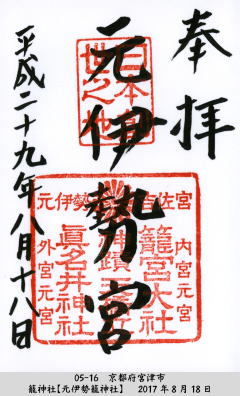 奉拝
元伊勢宮
平成二十九年八月十八日
籠宮大社
眞名井神社
内宮元宮
外宮元宮
05-16　京都府宮津市
籠神社【元伊勢籠神社】　2017年8月18日